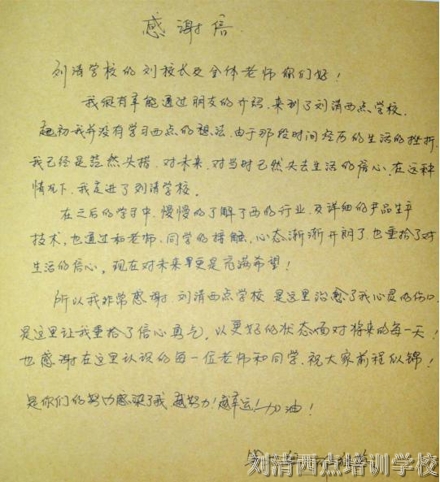 感谢信
刘清学校的刘校长及全体老师你们好！
我很有幸能通过朋友的介绍，来到了刘清西点学校。
起初我并没有学习西点的想法，由于那段时间经历的生活的挫折，
我已经是茫然失措，对未来，对当时已然失去生活的信心，在这种
情况下，我走进了刘清学校。
在之后的学习中，慢慢的了解了西的行业，及详细的产品生产
技术，也通过和老师、同学的接触，心态渐渐开朗了，也重拾了对
生活的信心，现在对未来更是充满希望！
所以我非常感谢 刘清西点学校 是这里治愈了我心灵的伤口
是这里让我重拾了信心勇气，以更好的状态面对将来的每一天！
也感谢在这里认识的每一位老师和同学，祝大家前程似锦！
是你们的努力感染了我 越努力！越幸运！加油！
刘清西点培训学校